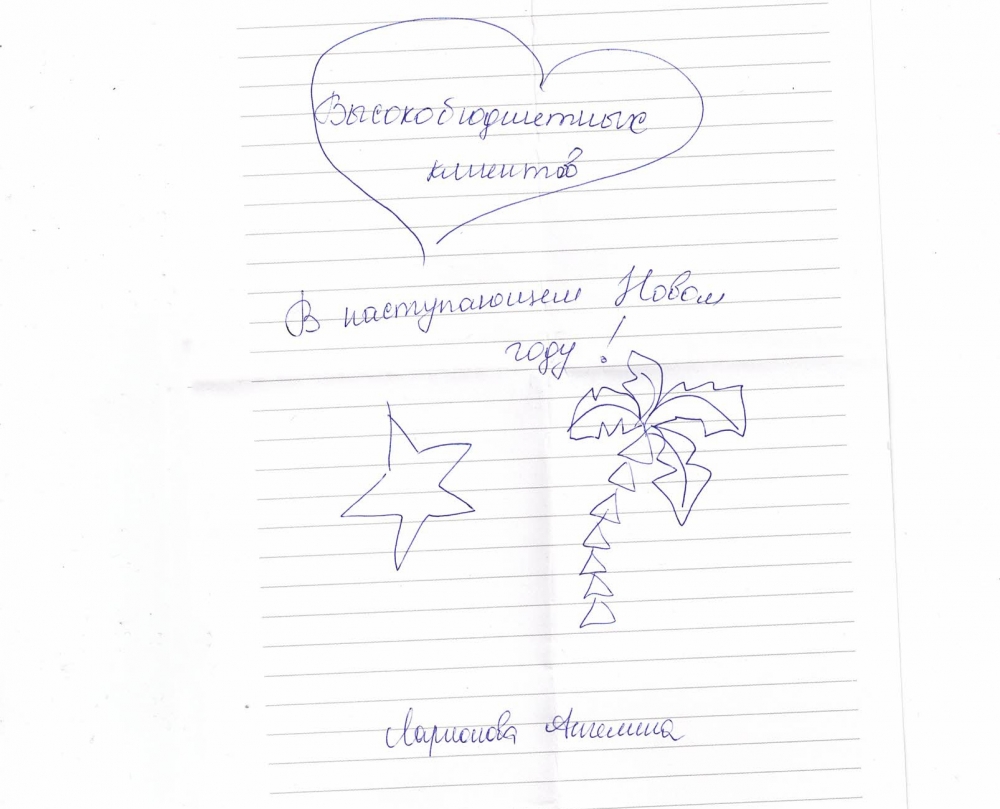 Высокобюджетных
клиентов
В наступающем Новом
году!
Ларионова Ангелина